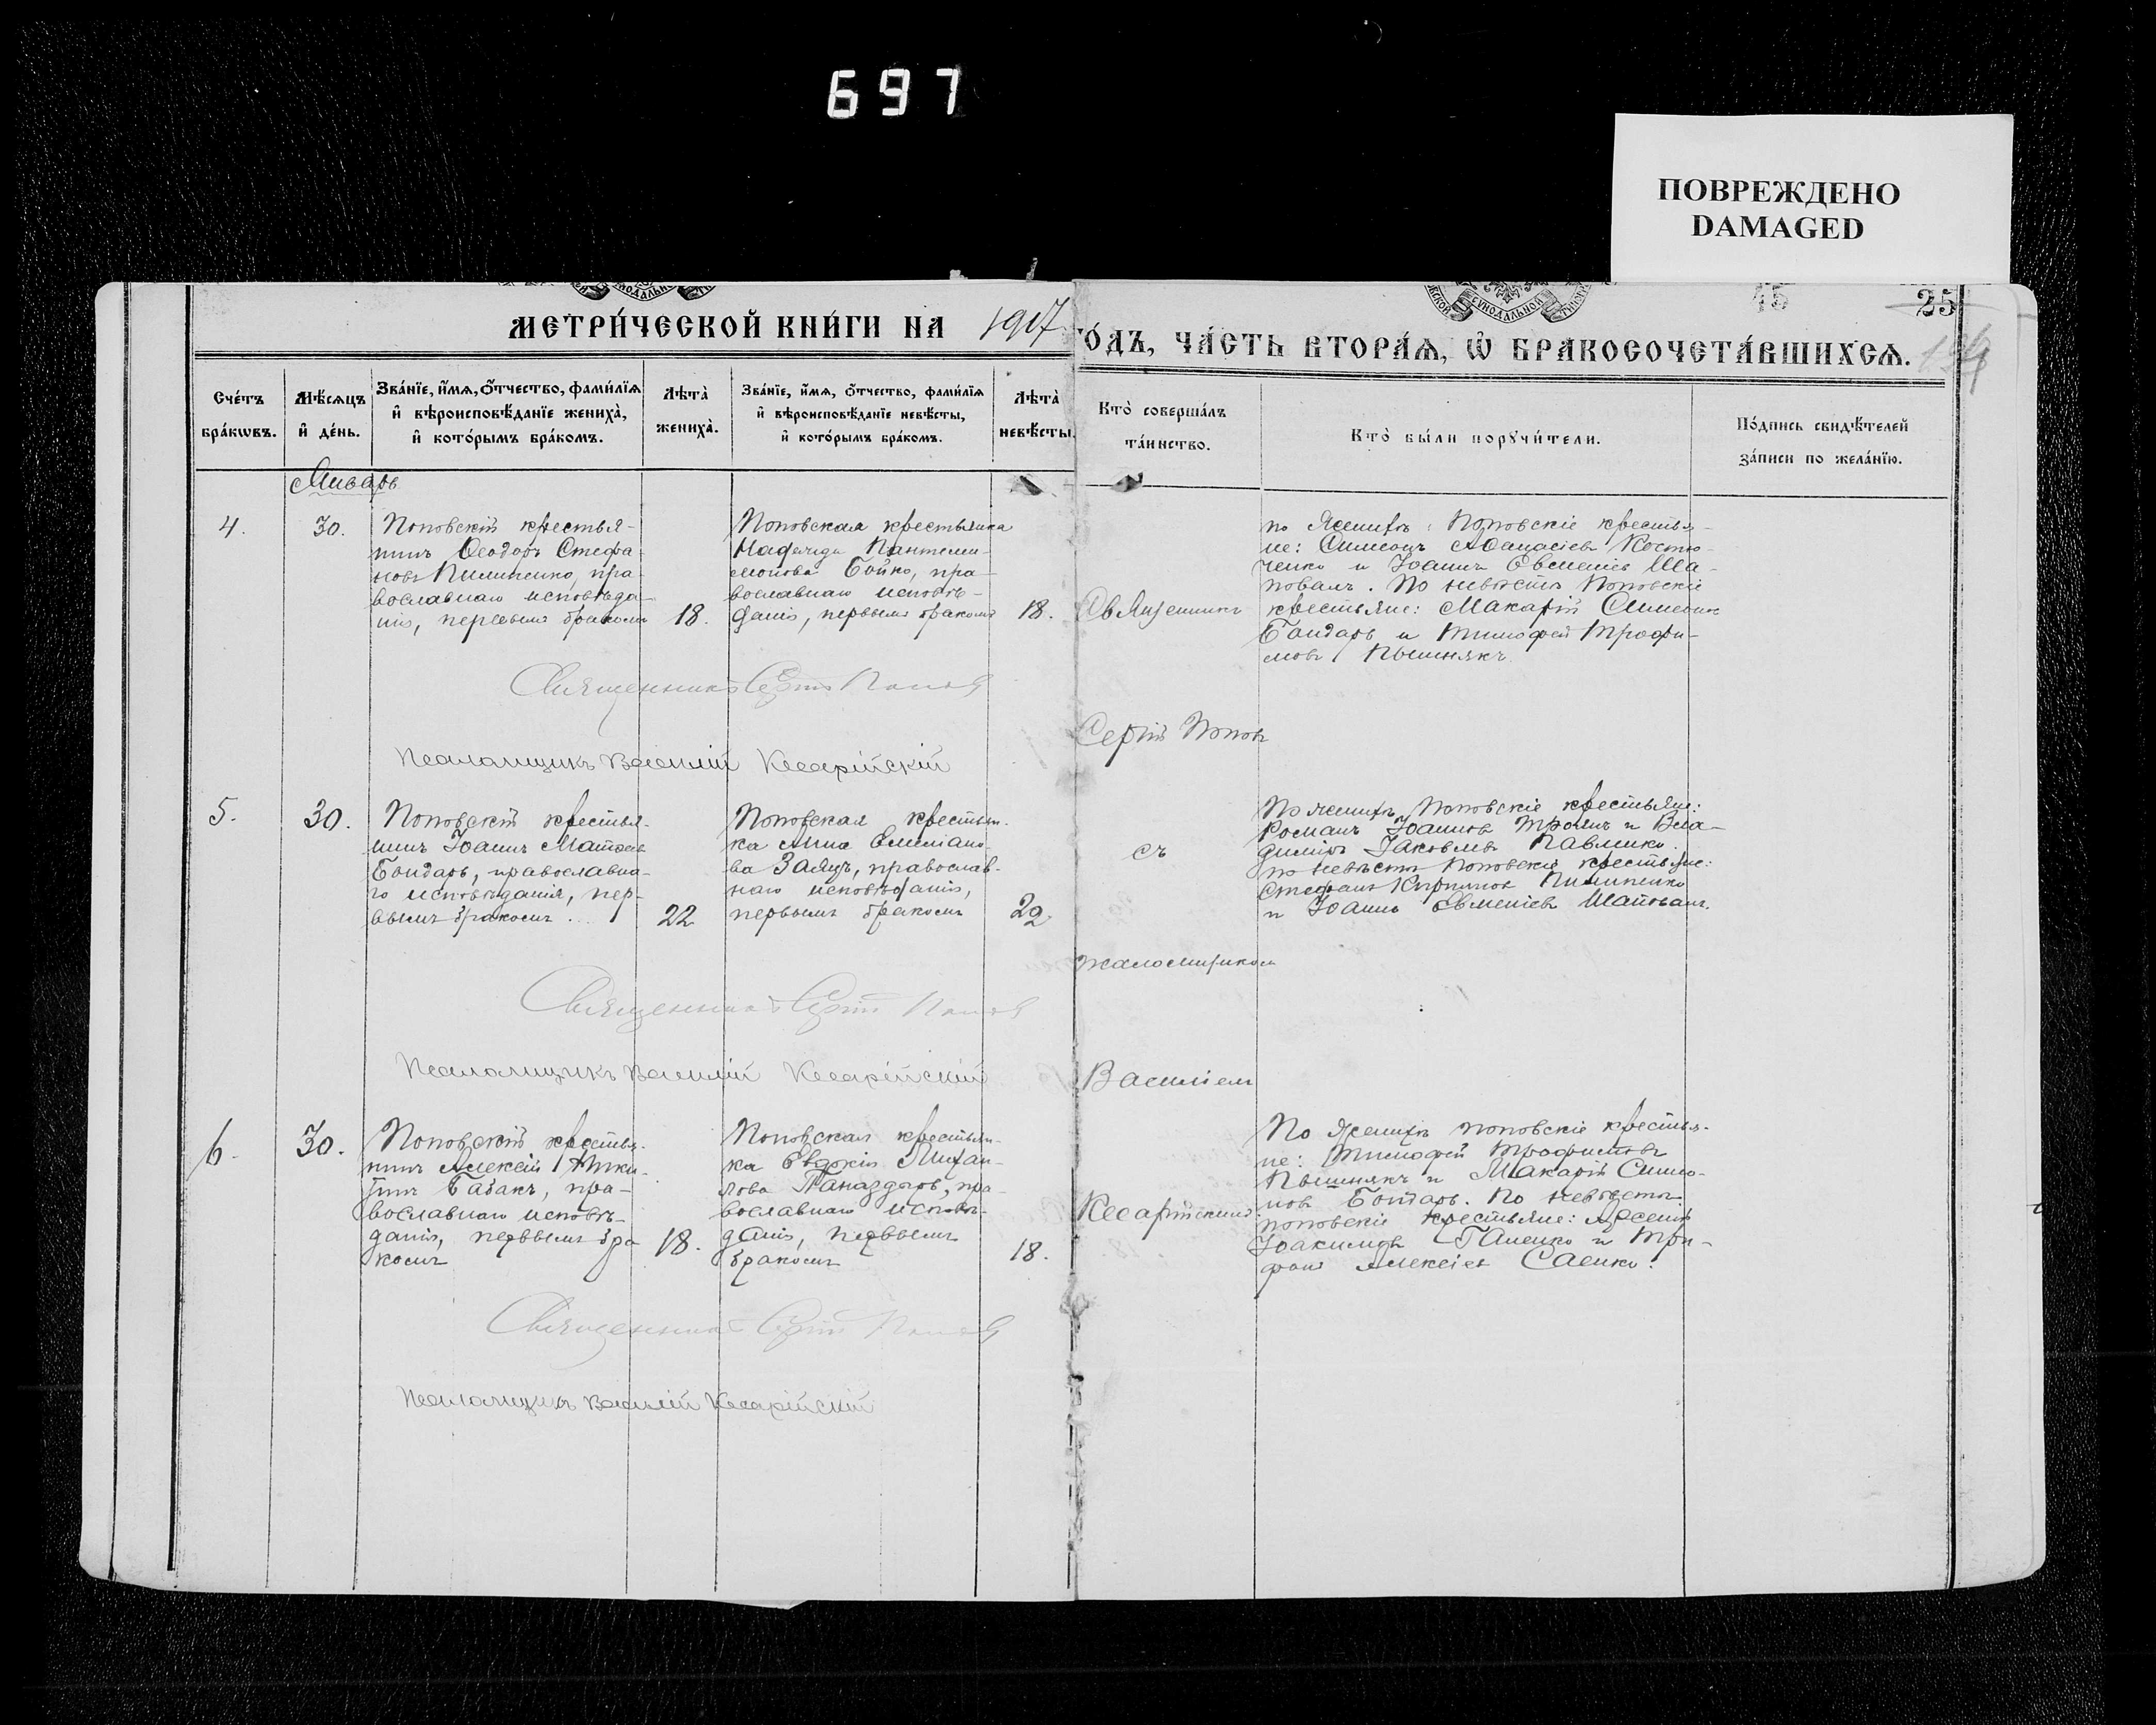 697
ПОВРЕЖДЕНО
DAMAGED
МЕТРИ́ЧЕСКОЙ КНИ́ГИ НА 1917
ГО́ДЪ, ЧА́СТЬ ВТОРА́Я, Ѽ БРАКОСОЧЕТА́ВШИХСЯ.
45
25
Сче́тъ бра́кѡвъ.
Мѣ́сяцъ и҆ де́нь.
Зва́нїе, и҆́мя, ѻ҆́тчество, фами́лїя и҆ вѣроисповѣ́данїе жениха̀, и҆ кото́рымъ бра́комъ.
Лѣта̀ жениха̀.
Зва́нїе, и҆́мя, ѻ҆́тчество, фами́лїя и҆ вѣроисповѣ́данїе невѣ́сты, и҆ кото́рымъ бра́комъ.
Лѣта̀ невѣ́сты.
Кто̀ соверша́лъ та́инство.
Кто̀ бы́ли порꙋчи́тели.
По́дпись свидѣ́телей за́писи по жела́нїю.
Январь
4.
30.
Поповскій крестья-
нинъ Ѳеодоръ Стефа-
новъ Пилипенко, пра-
вославнаго исповѣда-
нія, первымъ бракомъ
18.
Поповская крестьянка
Пантели-
монова Бойко, пра-
вославнаго исповѣ-
данія, первымъ бракомъ
18.
Священникъ
по женихѣ: Поповскіе крестья-
не: Симеонъ Аѳанасіевъ Костю-
ченко и Іоаннъ Евменіевъ Ша-
повалъ. По невѣстѣ Поповскіе
крестьяне: Макарій Симеоновъ
Бондарь и Тимофей Трофи-
мовъ Пышнякъ.
Священникъ Сергій Поповъ
Сергій Поповъ
Псаломщикъ Василій Кесарійскій
5.
30.
Поповскій крестья-
нинъ Іоаннъ Матѳеевъ
Бондарь, православна-
го исповѣданія, пер-
вымъ бракомъ
22
Поповская крестьян-
ка Анна Емиліано-
ва Заяцъ, православ-
наго исповѣданія,
первымъ бракомъ
22
съ
По женихѣ, Поповскіе крестьяне:
Романъ Іоанновъ Троянъ и Вла-
диміръ Іаковлевъ Павленко.
по невѣстѣ Поповскіе крестьяне:
Стефанъ Пилипенко
и Іоаннъ Евменіевъ Шаповалъ.
псаломщикомъ
Священникъ Сергій Поповъ
Псаломщикъ Василій Кесарійскій
Василіемъ
6.
30.
Поповскій крестья-
нинъ Алексій Ники-
тинъ Бабакъ, пра-
вославнаго исповѣ-
данія, первымъ бра-
комъ
18.
Поповская крестьян-
ка Евдокія Михаи-
лова пра-
вославнаго исповѣ-
данія, первымъ
бракомъ
18.
Кесарійскимъ
По женихѣ поповскіе крестья-
не: Тимофей Трофимовъ
Пышнякъ и Макарій Симео-
новъ Бондарь. По невѣстѣ
поповскіе крестьяне: Арсеній
Іоакимовъ и Три-
фонъ Алексіевъ Саенко.
Священникъ Сергій Поповъ
Псаломщикъ Василій Кесарійскій